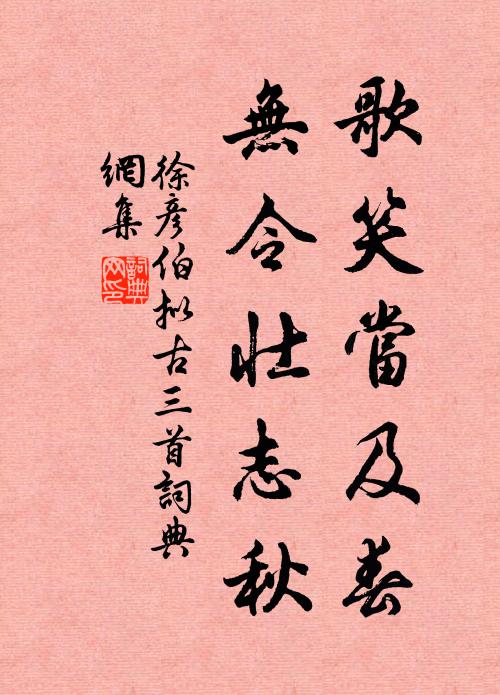 歌笑當及春
無令壯志秋
徐彥伯擬古三首詞典
網集
詞典網印